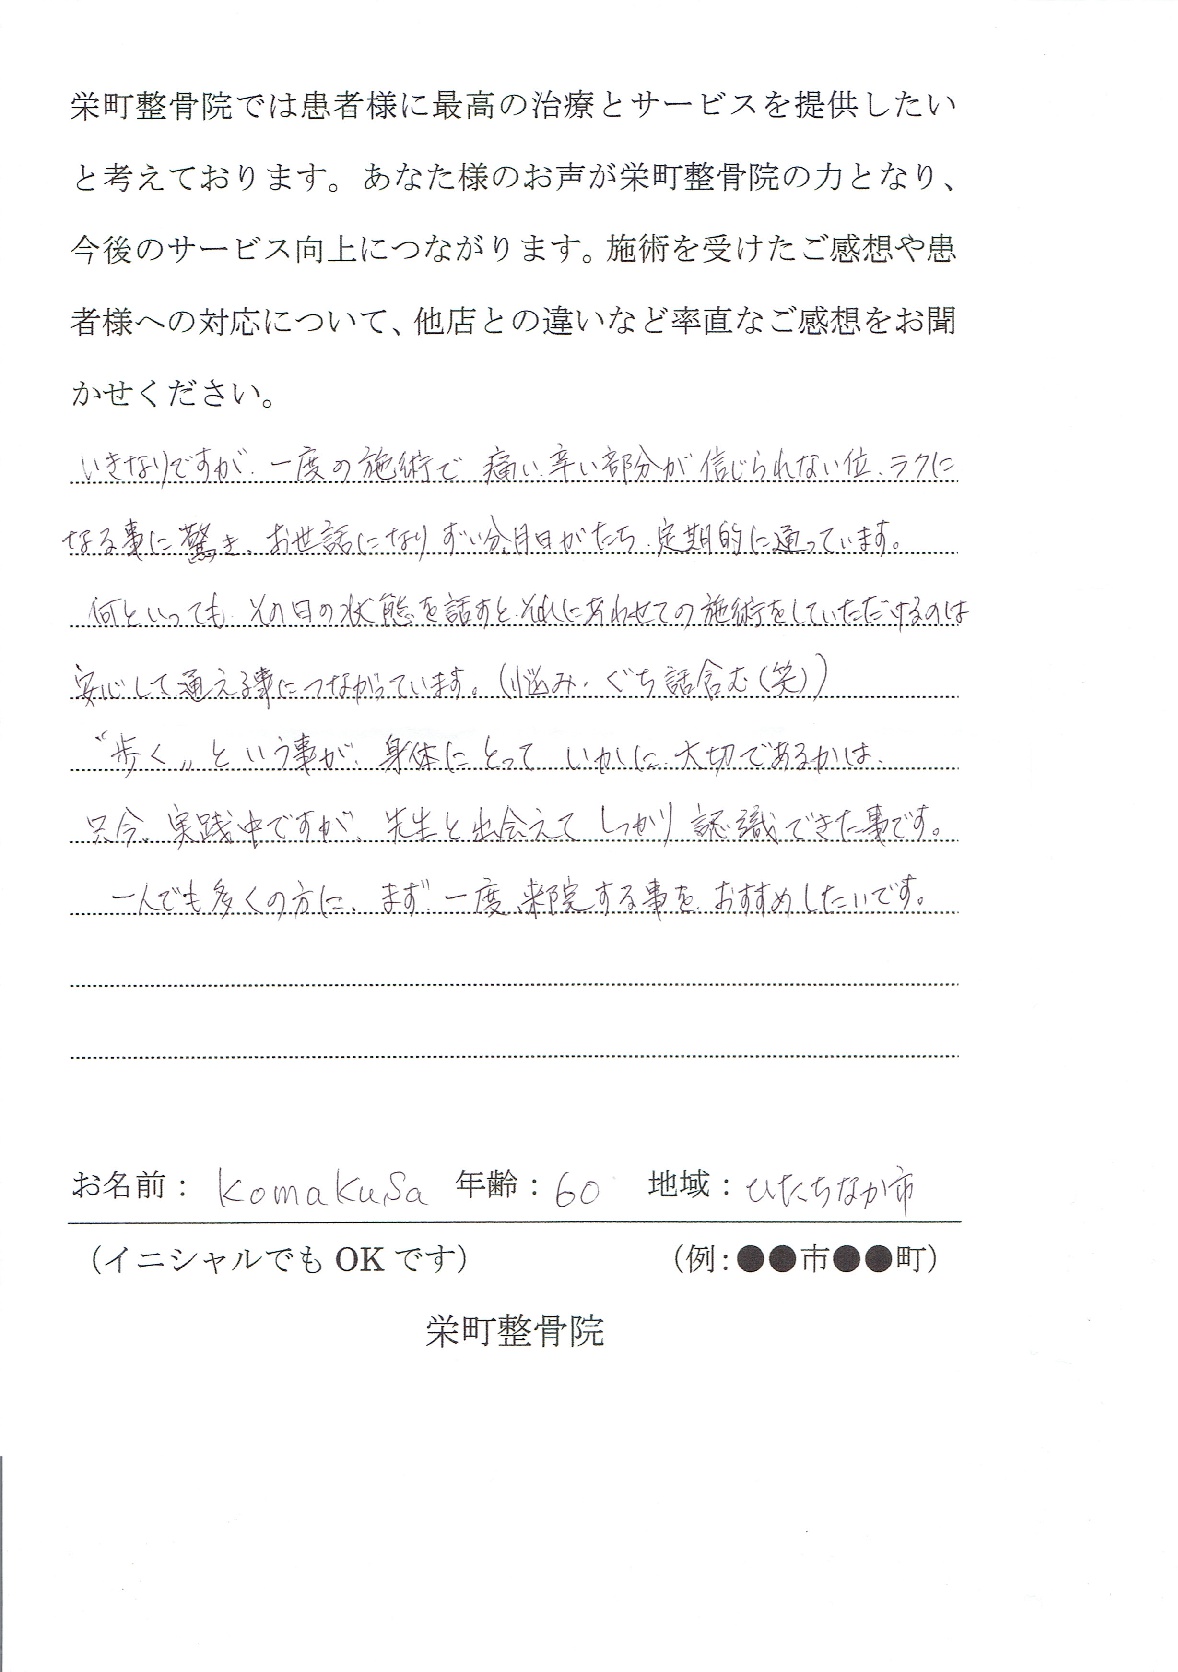 栄町整骨院では患者様に最高の治療とサービスを提供したい
と考えております。あなた様のお声が栄町整骨院の力となり、
今後のサービス向上につながります。施術を受けたご感想や患
者様への対応について、他店との違いなど率直なご感想をお聞
かせください。
いきなりですが、一度の施術で、痛い、辛い部分が信じられない位、ラクに
なる事に驚き、お世話になりずい分月日がたち、定期的に通っています。
何といっても、その日の状態を話すと、それにあわせての施術をしていただけるのは
安心して通える事につながっています。(悩み・ぐち話含む(笑))
〝歩く〟という事が、身体にとって いかに、大切であるかは、
只今、実践中ですが、先生と出会えて しっかり 認識できた事です。
一人でも多くの方に、まず 一度、来院する事を、おすすめしたいです。
お名前： Komakusa 年齢：60 地域：ひたちなか市
（イニシャルでも OK です） （例：●●市●●町）
栄町整骨院